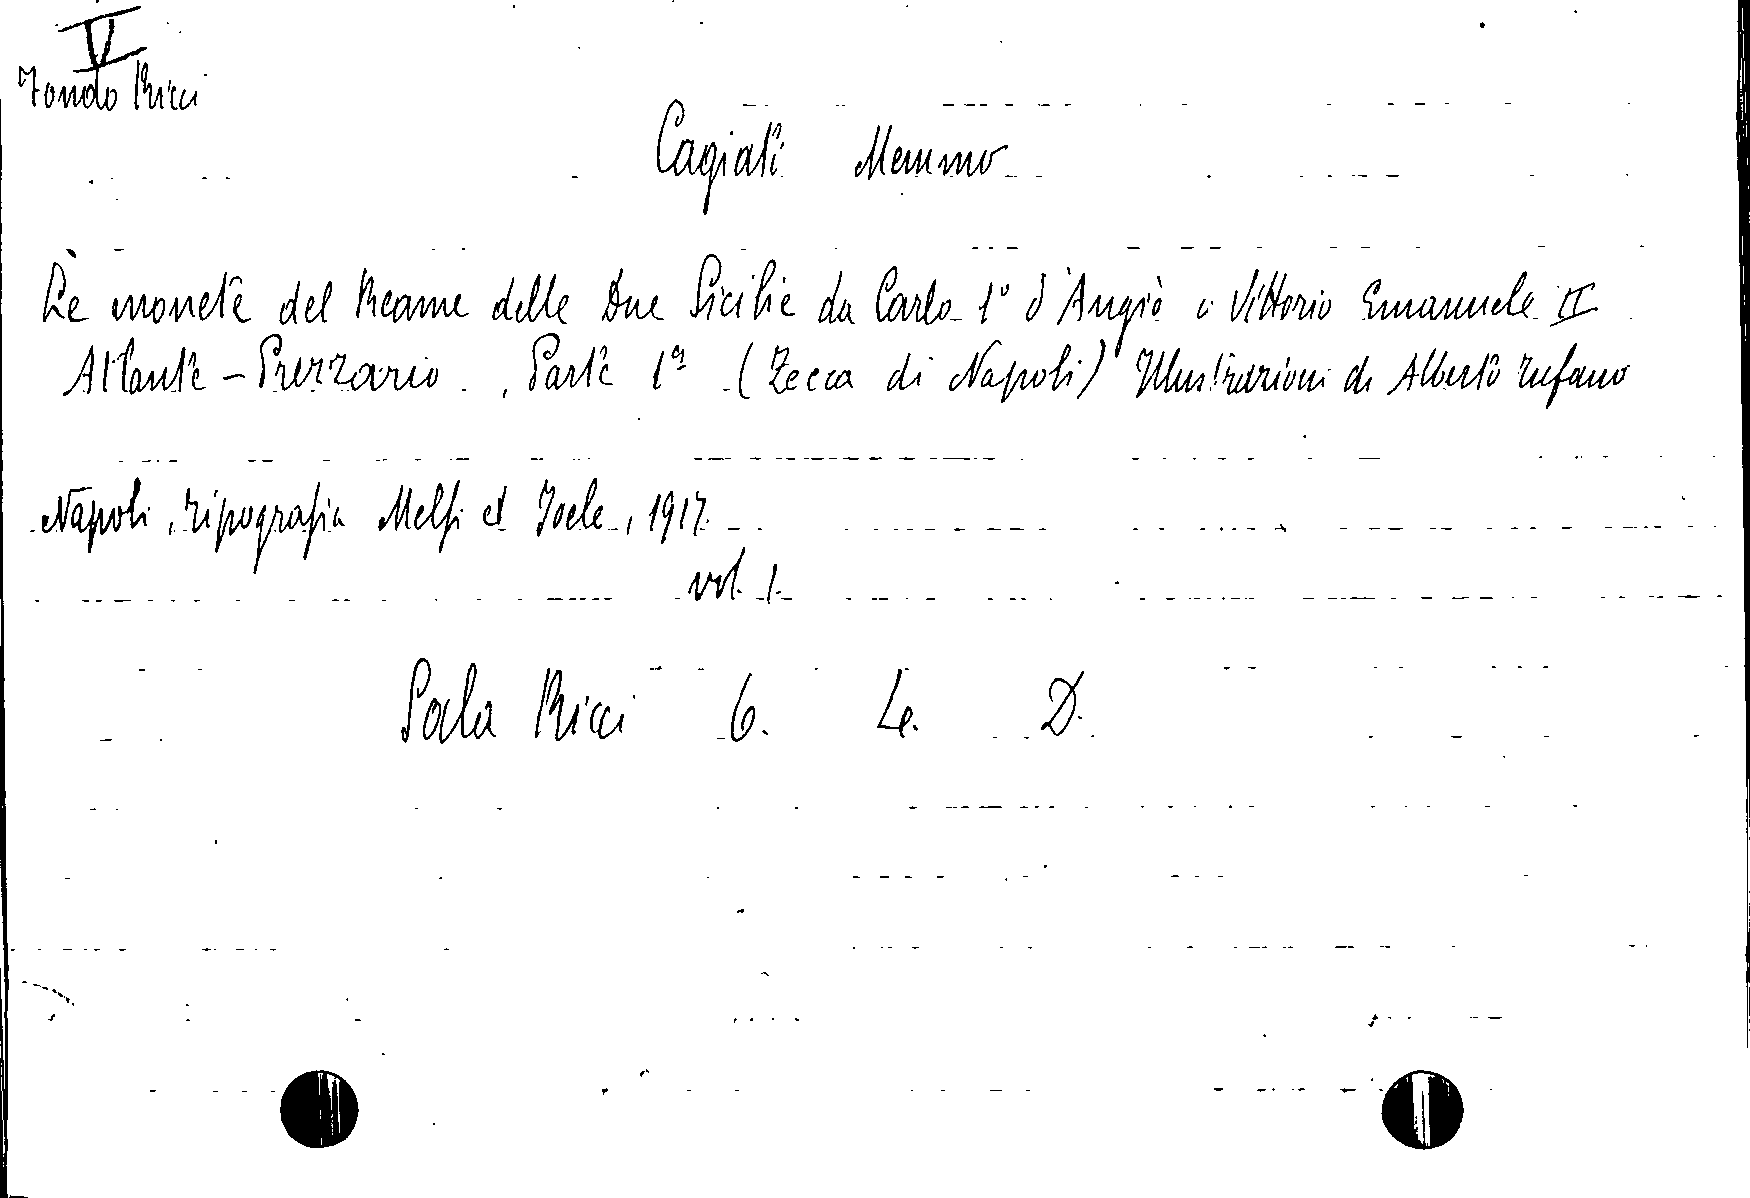 V
Fondo Ricci
Cagiati Memmo
Le monete del Reame delle Due Sicilie da Carlo 1° d'Angiò a Vittorio Emanuele II
Atlante - Prezzario. Parte 1ª (Zecca di Napoli) Illustrazioni di Alberto Tufano
Napoli, Tipografia Melfi et Joele, 1917
vol. 1.
Sala Ricci 6. L. D.